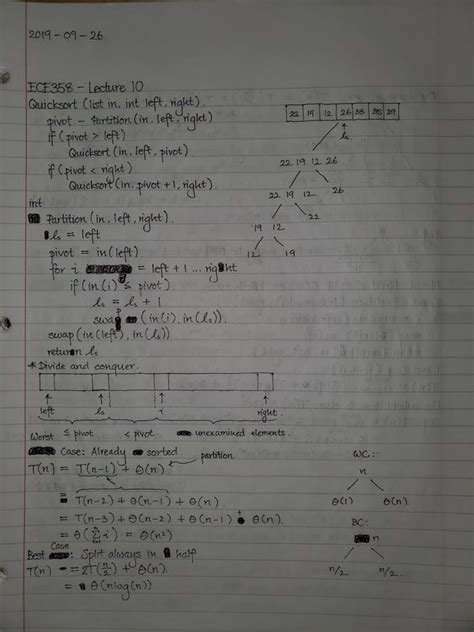 2019-09-26
ECE358 - Lecture 10
Quicksort (list in, int left, right).
pivot - Partition (in, left, right)
if (pivot > left)
Quicksort (in, left, pivot).
if (pivot < right)
Quicksort (in, pivot + 1, right)
int
Partition (in, left, right).
ls = left
pivot = in(left)
for i = left + 1 ... right
if (in(i) ≤ pivot)
ls = ls + 1
swap (in(i), in(ls)).
swap (in(left), in(ls))
return ls
22 19 12 26 38 35 29
ls
22 19 12 26
22 19 12 26
19 12 22
12 19
* Divide and conquer.
left ls i right
≤ pivot < pivot unexamined elements.
Worst Case: Already sorted
T(n) = T(n-1) + Θ(n) partition
= T(n-2) + Θ(n-1) + Θ(n)
= T(n-3) + Θ(n-2) + Θ(n-1) + Θ(n)
= Θ(Σi) = Θ(n²)
Best Case: Split always in half
T(n) = 2T(n/2) + Θ(n)
= Θ(nlog(n))
WC:
n
Θ(1) Θ(n)
BC:
n
n/2 n/2